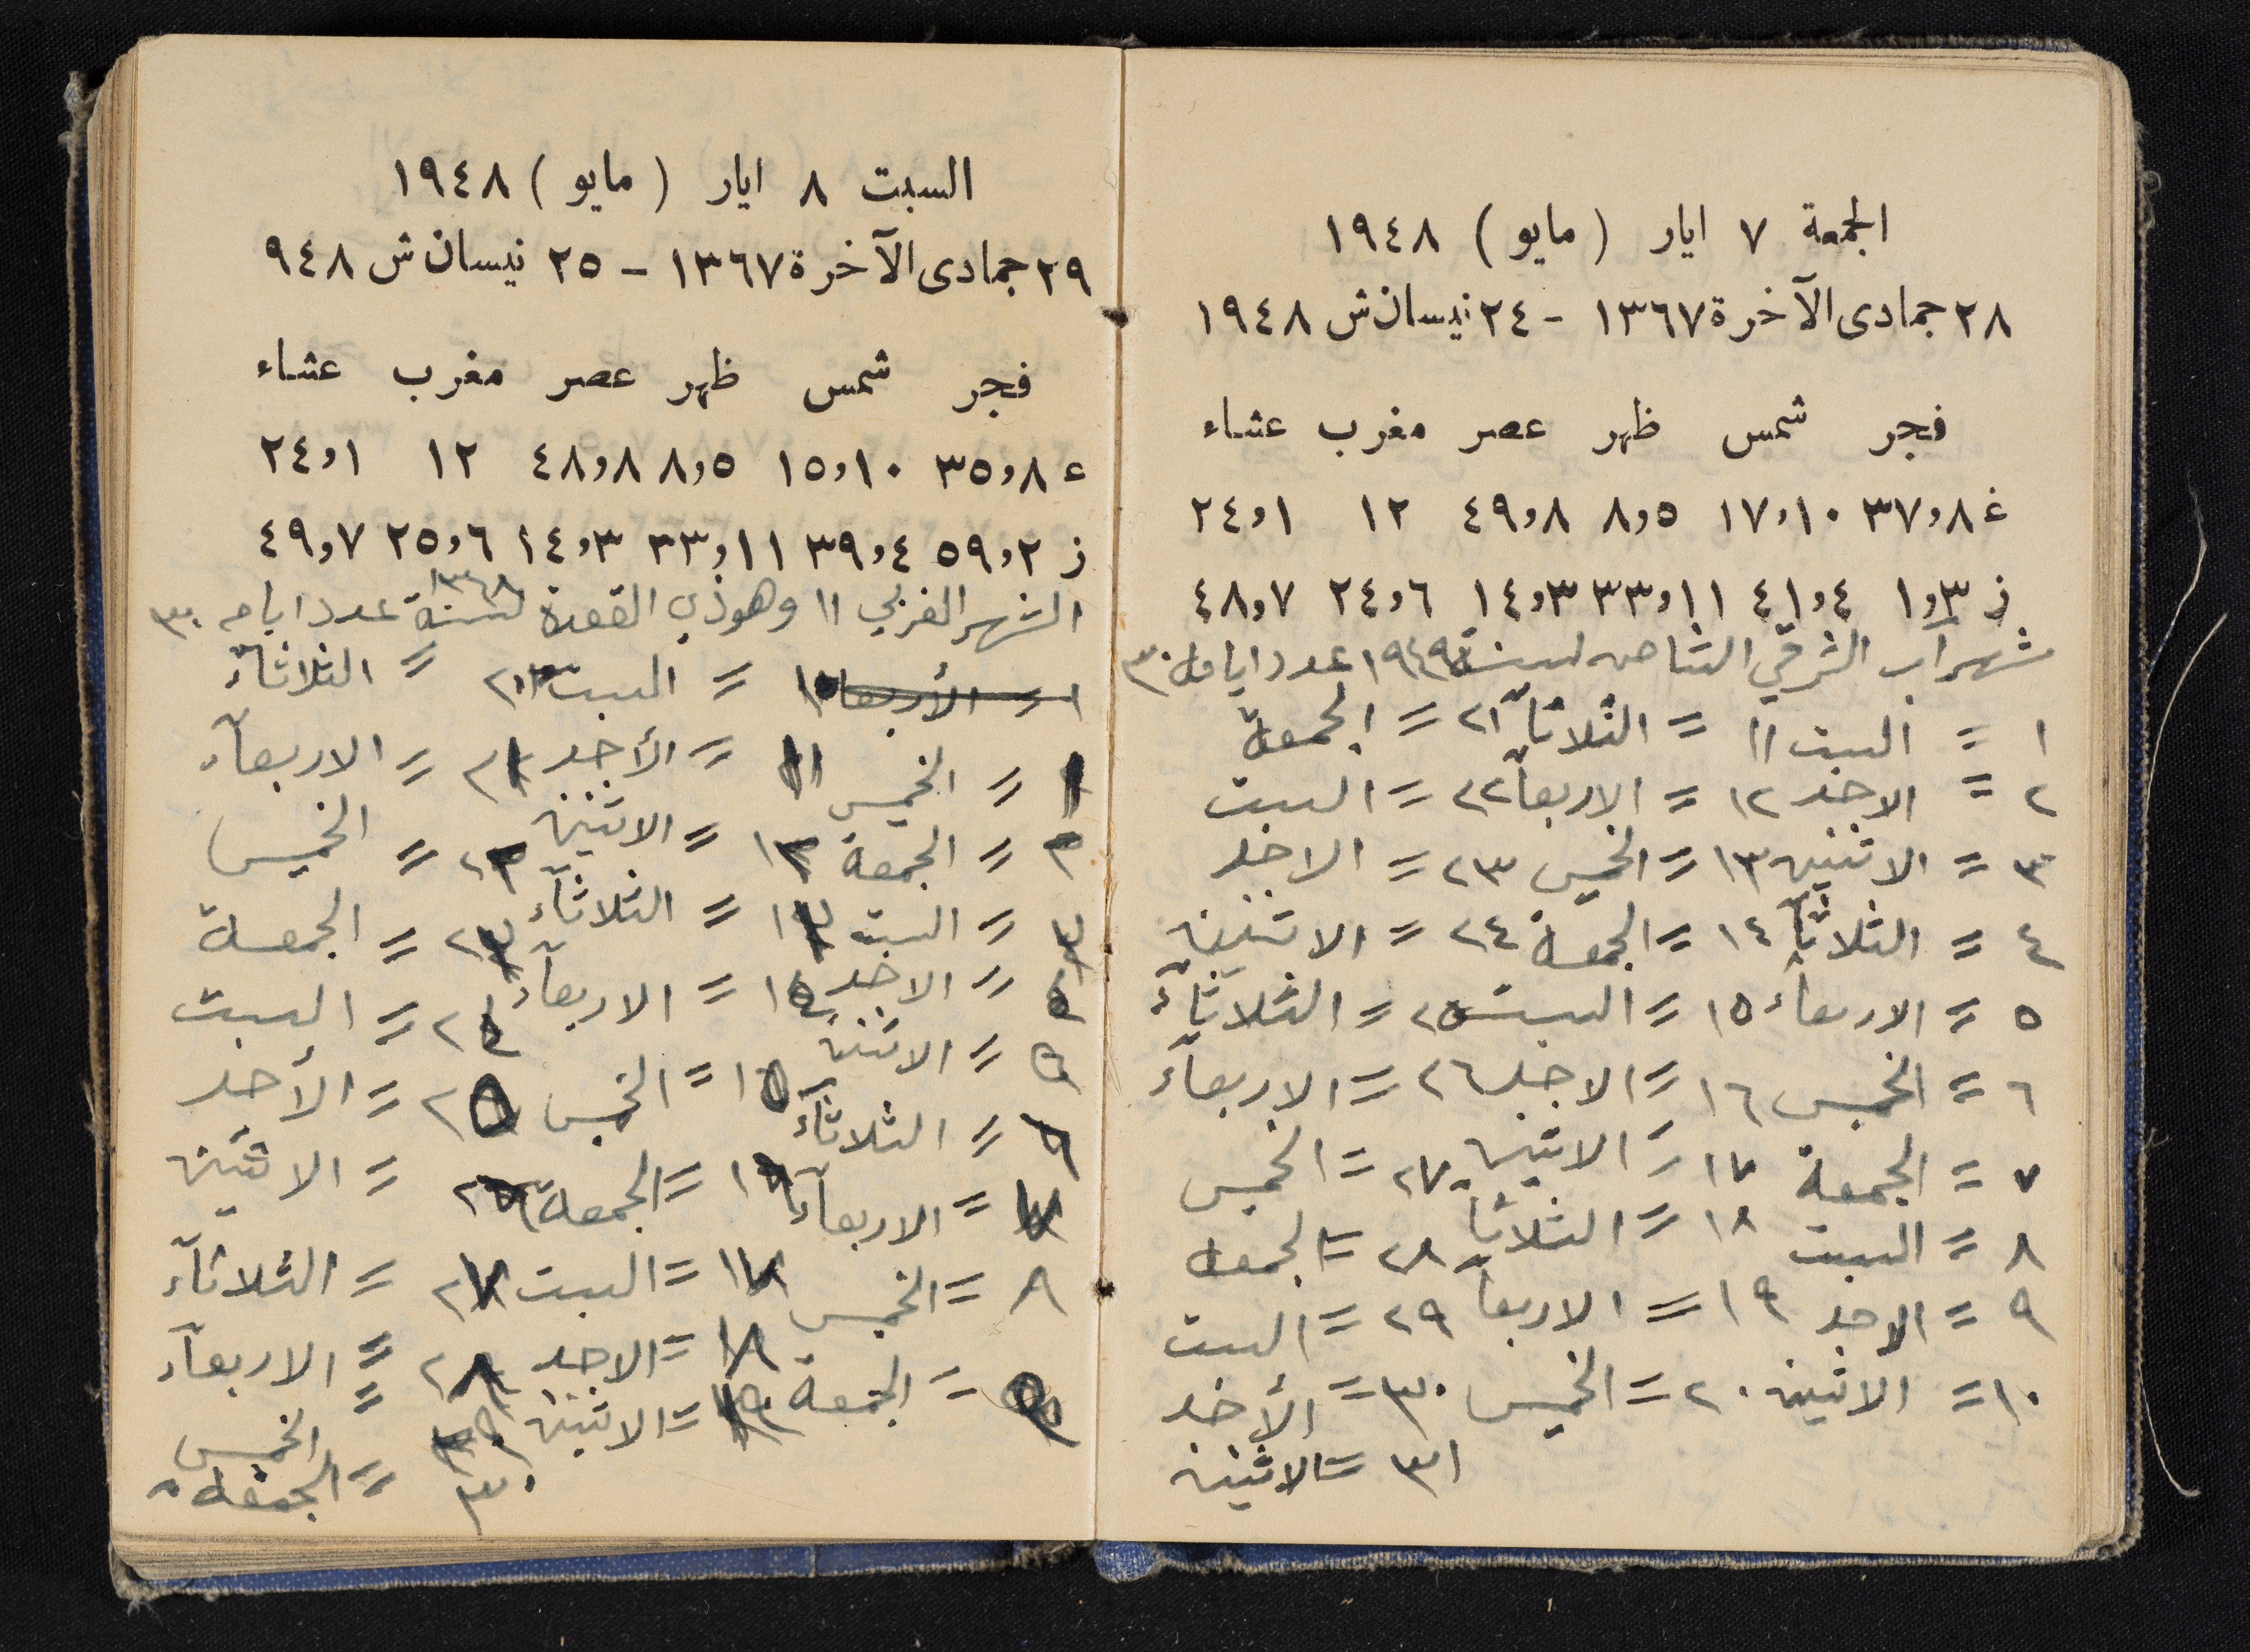 الجمعة ٧ ايار (مايو) ١٩٤٨
٢٨ جمادى الآخرة ١٣٦٧ - ٢٤ نيسان ش ١٩٤٨
فجر شمس ظهر عصر مغرب عشاء
غ ٣٧,٨ ١٧,١٠ ٨,٥ ٤٩,٨ ١٢ ٢٤,١
ز ١,٣ ٤١,٤ ٣٣,١١ ١٤,٣ ٢٤,٦ ٤٨,٧
شهر آب الشرقي الثامن لسنة ١٩٤٩ عدد ايامه ٣٠
١ = السبت ١١ = الثلاثآ ٢١ = الجمعة
٢ = الاحد ١٢ = الاربعآ ٢٢ = السبت
٣ = الاثنين ١٣ = الخميس ٢٣ = الاحد
٤ = الثلاثآ ١٤ = الجمعة ٢٤ = الاثنين
٥ = الاربعآء ١٥ = السبت ٢٥ = الثلاثآء
٦ = الخميس ١٦ = الاحد ٢٦ = الاربعآء
٧ = الجمعة ١٧ = الاثنين ٢٧ = الخميس
٨ = السبت ١٨ = الثلاثآ ٢٨ = الجمعه
٩ = الاحد ١٩ = الاربعآ ٢٩ = السبت
١٠ = الاثنين ٢٠ = الخميس ٣٠ = الأحد
٣١ = الاثنين
السبت ٨ ايار (مايو) ١٩٤٨
٢٩ جمادى الآخرة ١٣٦٧ - ٢٥ نيسان ش ٩٤٨
فجر شمس ظهر عصر مغرب عشاء
ع ٣٥,٨ ١٥,١٠ ٨,٥ ٤٨,٨ ١٢ ٢٤,١
ز ٥٩,٢ ٣٩,٤ ٣٣,١١ ١٤,٣ ٢٥,٦ ٤٩,٧
الشهر العربي ١١ وهو ذي القعدة لسنة ١٣٦٨ عدد ايامه ٣٠
١ = الأربعا ١٠ = السبت ٢٠ = الثلاثآء
١ = الخميس ١١ = الأحد ٢١ = الاربعآء
٢ = الجمعة ١٢ = الاثنين ٢٢ = الخميس
٣ = السبت ١٣ = الثلاثآء ٢٣ = الجمعة
٤ = الاحد ١٤ = الاربعآء ٢٤ = السبت
٥ = الاثنين ١٥ = الخميس ٢٥ = الأحد
٦ = الثلاثآء ١٦ = الجمعة ٢٦ = الاثنين
٧ = الاربعآء ١٧ = السبت ٢٧ = الثلاثآء
٨ = الخميس ١٨ = الاحد ٢٨ = الاربعآء
٩ = الجمعة ١٩ = الاثنين ٢٩ = الخميس
٣٠ = الجمعه